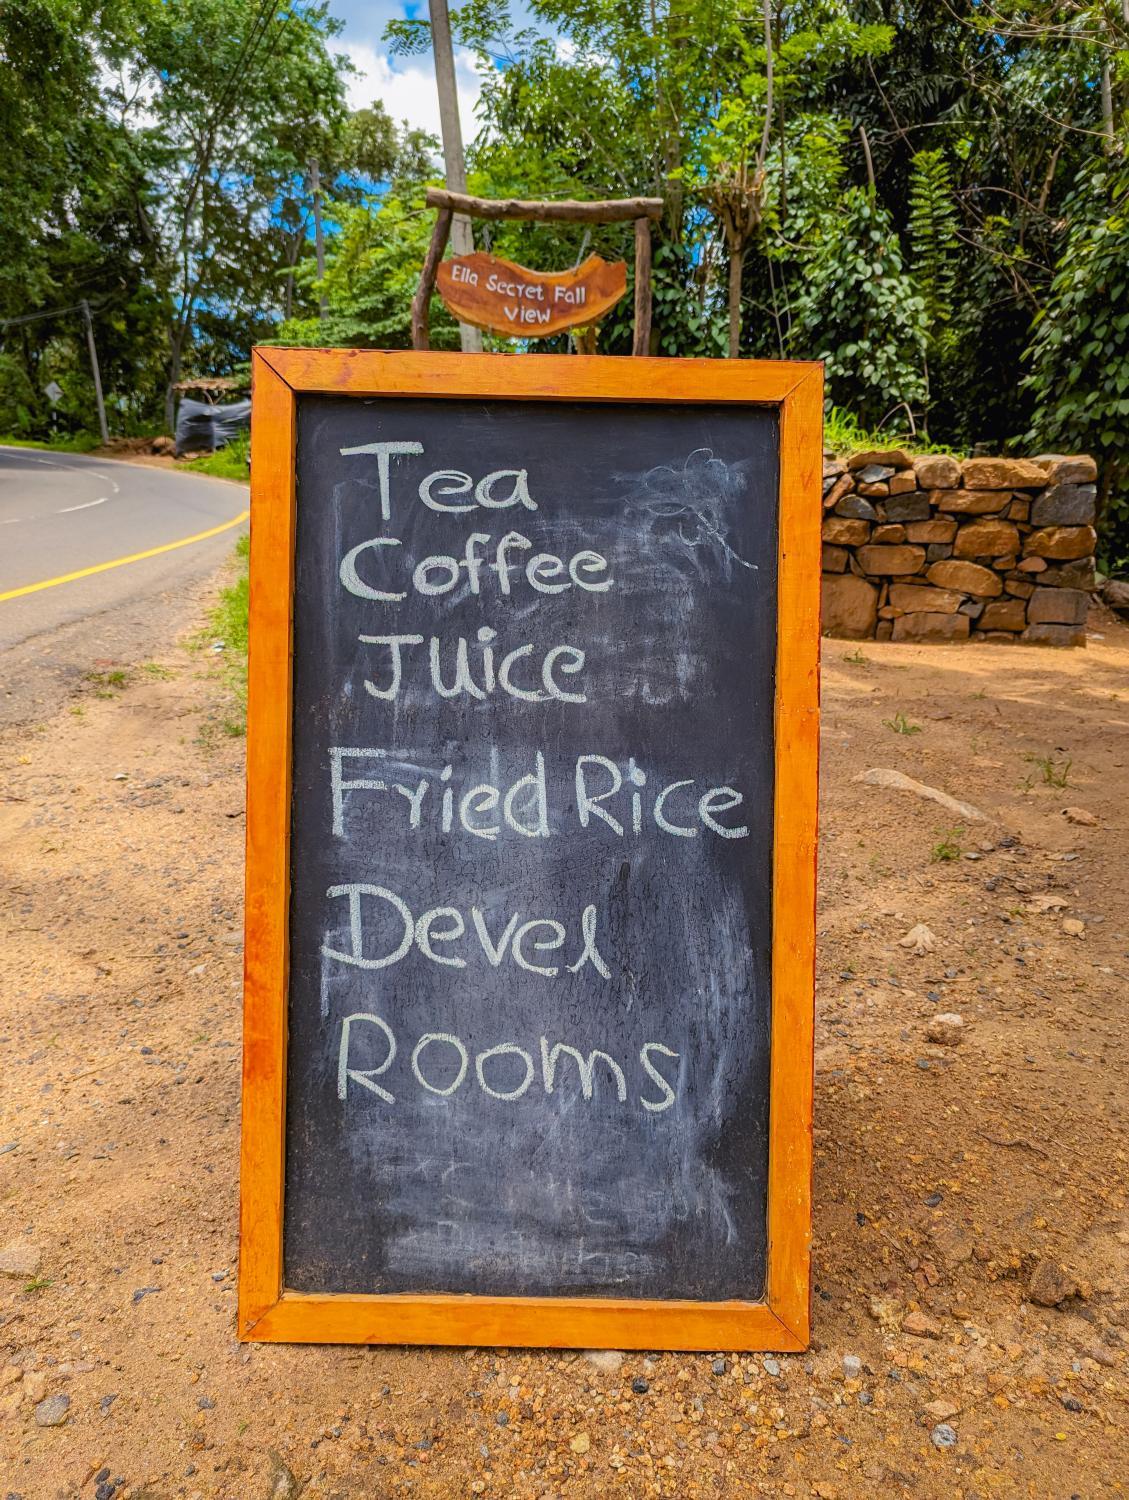 Ella Secret Fall
View
Tea
Coffee
Juice
Fried Rice
Devel
Rooms